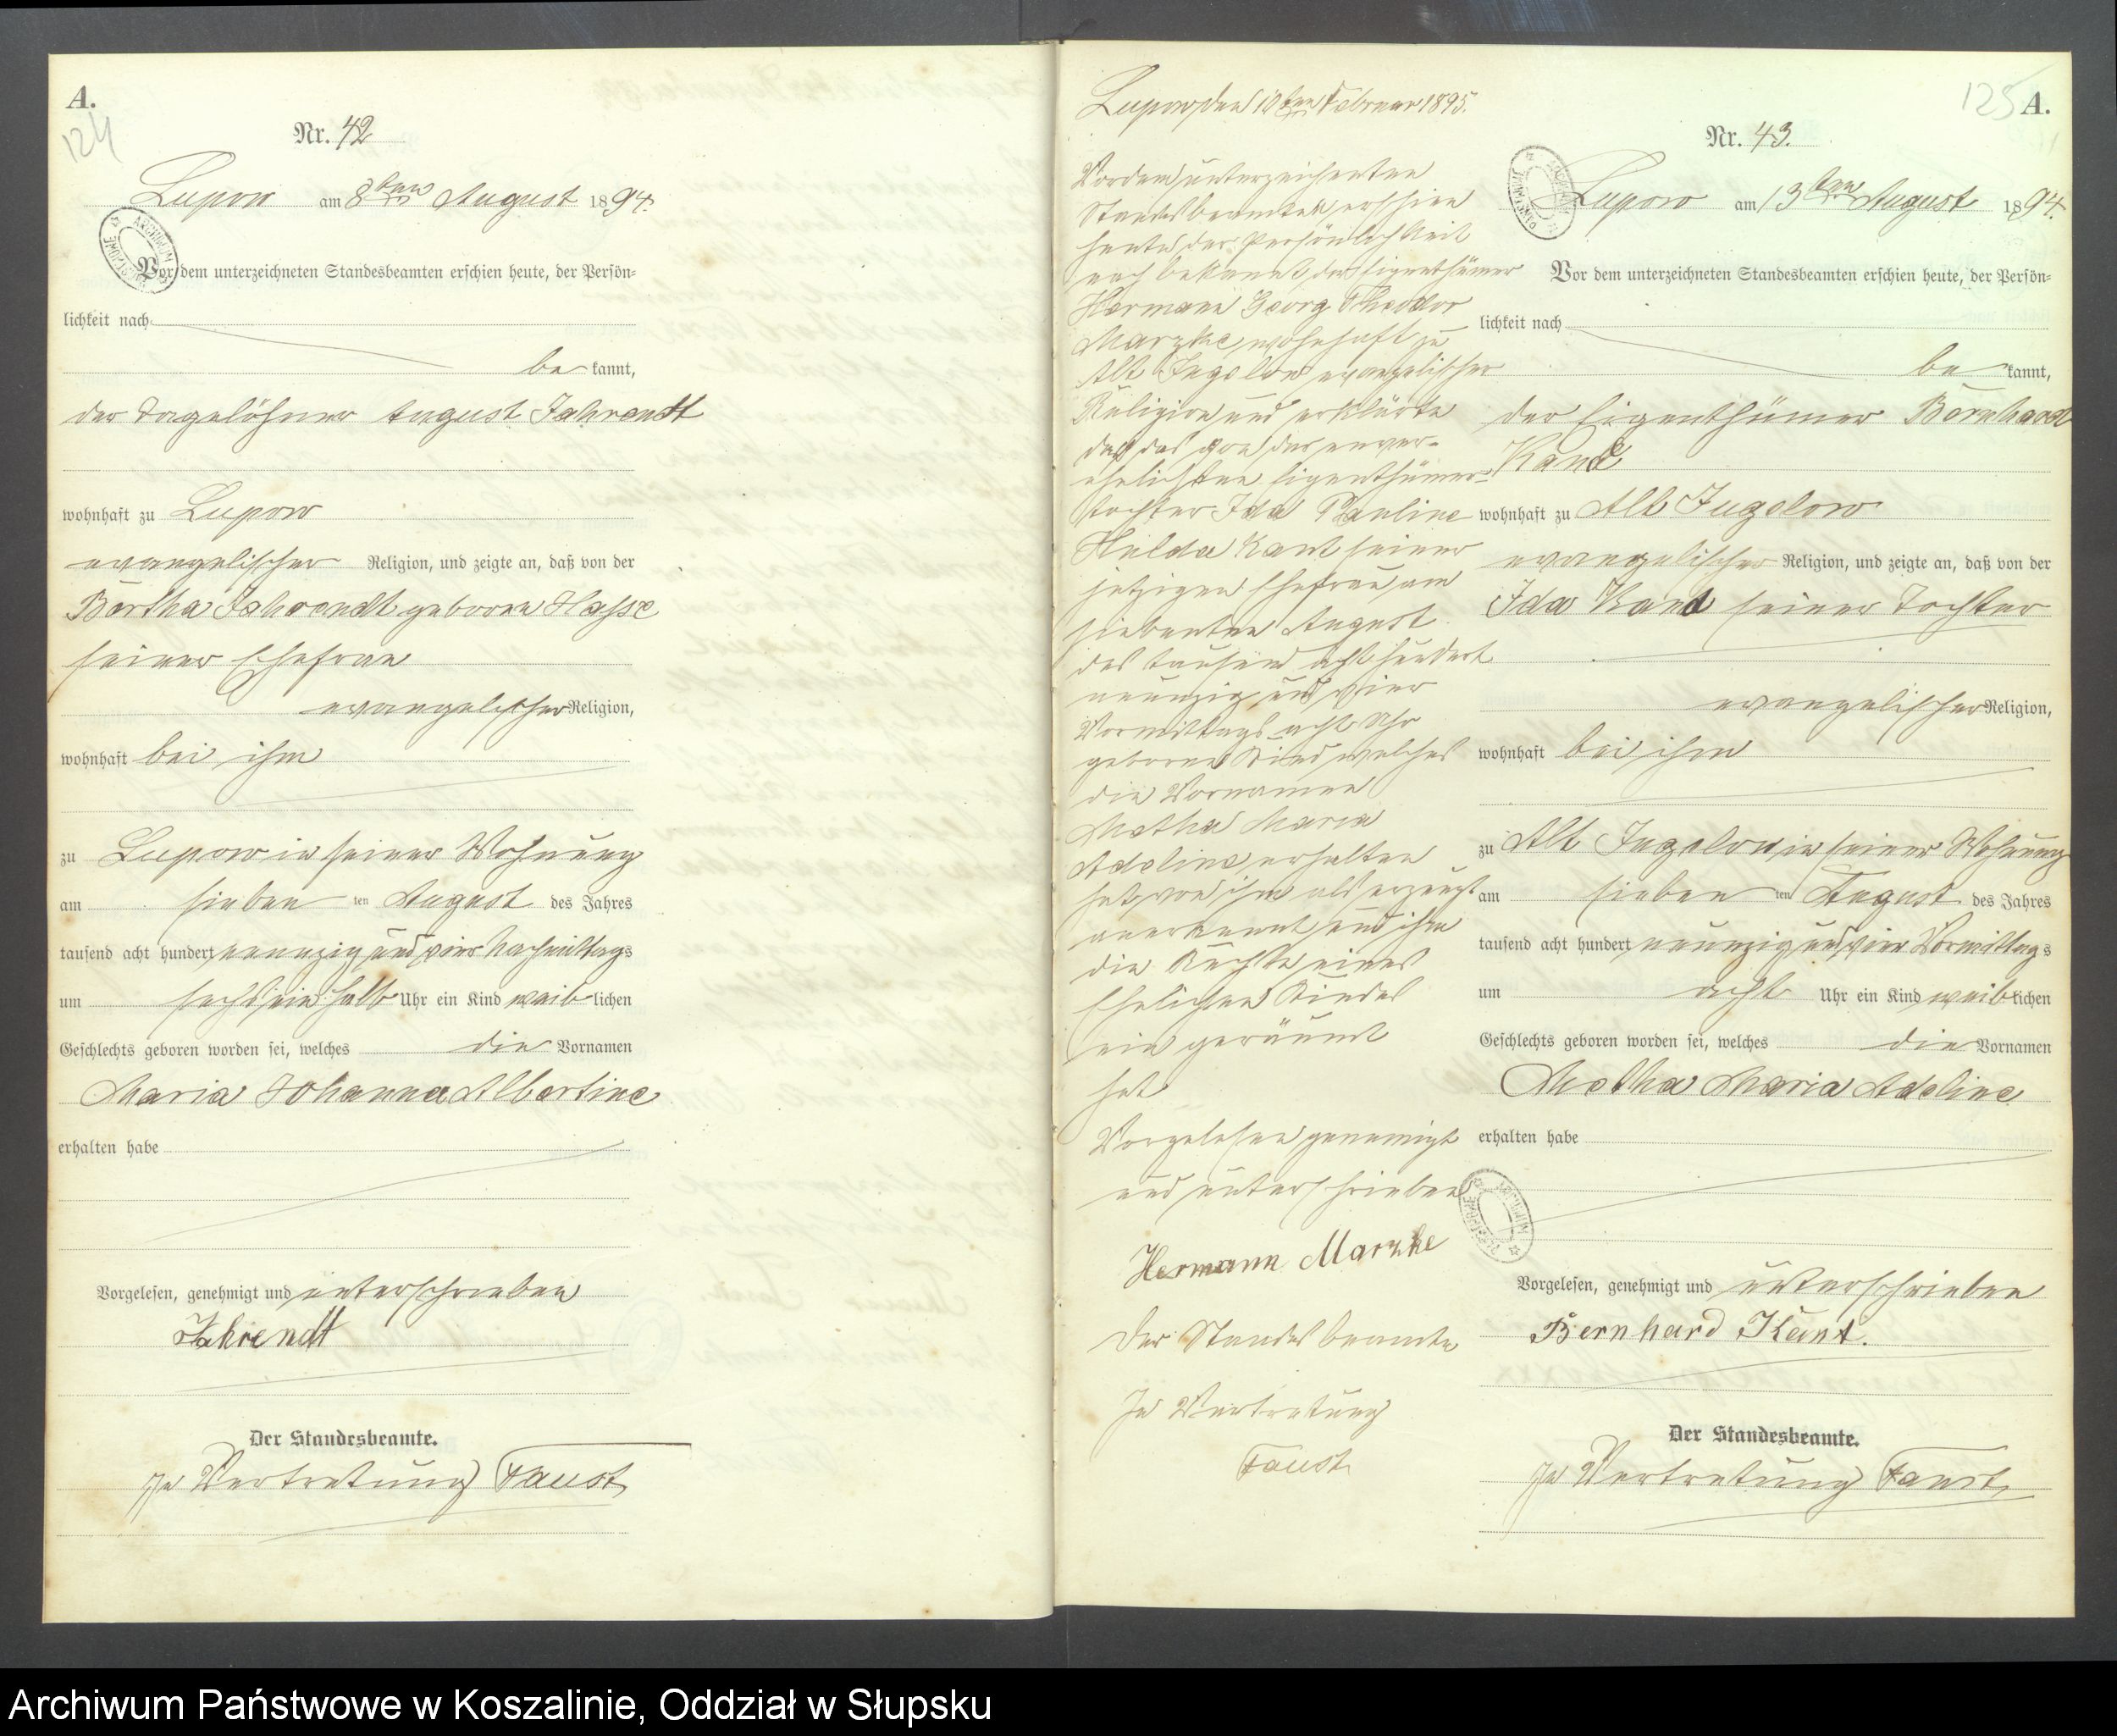 A.
124
Nr. 42
Lupow am 8ten August 1894.
Vor dem unterzeichneten Standesbeamten erschien heute, der Persön-
lichkeit nach
be kannt,
der Tagelöhner August Jahrendt
wohnhaft zu Lupow
evangelischer Religion, und zeigte an, daß von der
Bertha Jahrendt geborne Hasse
seiner Ehefrau
evangelischer Religion,
wohnhaft bei ihm
zu Lupow in seiner Wohnung
am sieben ten August des Jahres
tausend acht hundert neunzig und vier Nachmittags
um sechs ein halb Uhr ein Kind weib lichen
Geschlechts geboren worden sei, welches die Vornamen
Maria Johanna Albertine
erhalten habe
Vorgelesen, genehmigt und unterschrieben
Jahrendt
Der Standesbeamte.
In Vertretung Faust
Lupow den 10ten Februar 1895.
Vor dem unterzeichneten
Standesbeamten erschien
heute der Persönlichkeit
nach bekannt, der Eigenthümer
Hermann Georg Theodor
Marzke wohnhaft zu
Alt Jugelow evangelischer
Religion und erklärte
daß das von der unver-
ehelichten Eigenthümer-
tochter Ida Pauline
Hulda Kant seiner
jetzigen Ehefrau am
siebenten August
des tausend acht hundert
neunzig und vier
Vormittags acht Uhr
geborne Kind welches
die Vornamen
Metha Maria
Adeline erhalten
hat, von ihm als erzeugt
anerkannt und ihm
die Rechte eines
Ehelichen Kindes
ein geräumt
hat
Vorgelesen genemigt
und unterschrieben
Hermann Marzke
Der Standesbeamte
In Vertretung
Faust
125 A.
Nr. 43.
Lupow am 13ten August 1894.
Vor dem unterzeichneten Standesbeamten erschien heute, der Persön-
lichkeit nach
be kannt,
der Eigenthümer Bernhard
Kant
wohnhaft zu Alt Jugelow
evangelischer Religion, und zeigte an, daß von der
Ida Kant seiner Tochter
evangelischer Religion,
wohnhaft bei ihm
zu Alt Jugelow in seiner Wohnung
am sieben ten August des Jahres
tausend acht hundert neunzig und vier Vormittags
um acht Uhr ein Kind weib lichen
Geschlechts geboren worden sei, welches die Vornamen
Metha Maria Adeline
erhalten habe
Vorgelesen, genehmigt und unterschrieben
Bernhard Kant.
Der Standesbeamte.
In Vertretung Faust
Archiwum Państwowe w Koszalinie, Oddział w Słupsku